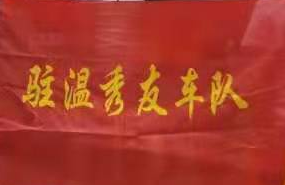 驻温秀友车队